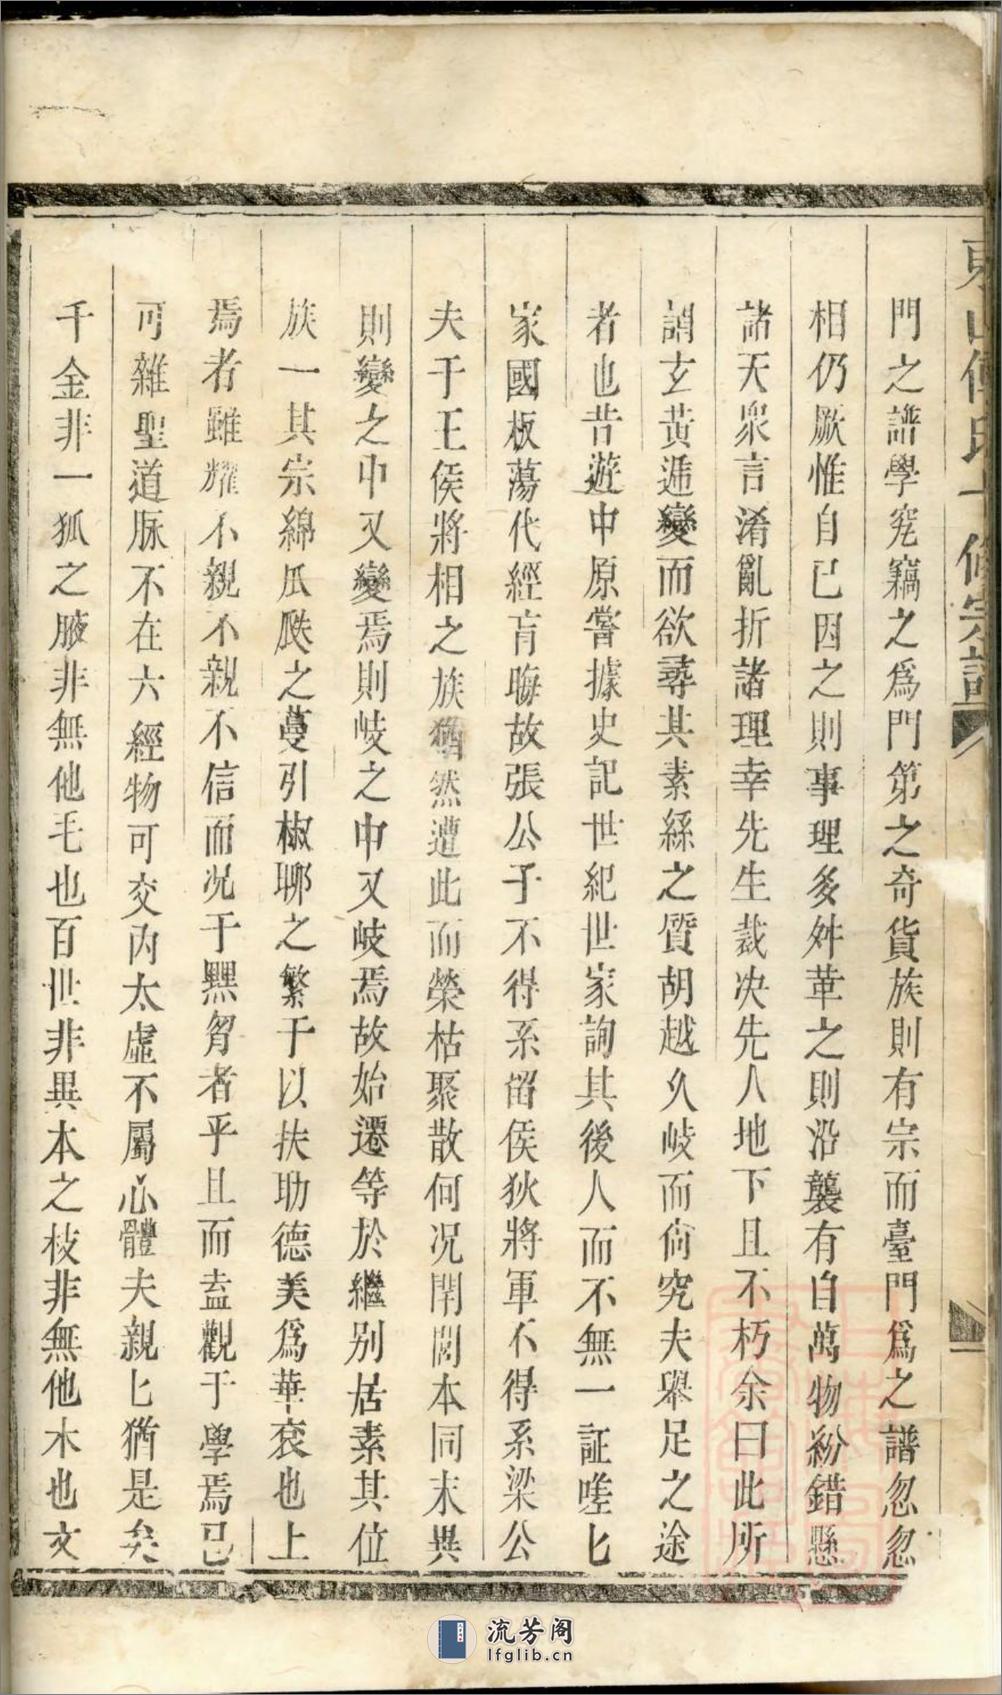 門之譜學究竊之爲門第之奇貨族則有宗而臺門爲之譜忽忽
相仍厥惟自已因之則事理多舛革之則沿襲有自萬物紛錯懸
諸天衆言淆亂折諸理幸先生裁决先人地下且不朽余曰此所
謂玄黄遞變而欲尋其素絲之質胡越久岐而尚究夫舉足之途
者也昔遊中原嘗據史記世紀世家詢其後人而不無一証嗟匕
家國板蕩代經盲晦故張公子不得系留侯狄將軍不得系梁公
夫于王侯將相之族猶然遭此而榮枯聚散何况閈閎本同末異
則變之中又變焉則岐之中又岐焉故始遷等於繼别居素其位
族一其宗綿瓜瓞之蔓引椒聊之繁于以扶助德美爲華衮也上
焉者雖耀不親不親不信而况于黑胷者乎且而盍觀于學焉已
可雜聖道脉不在六經物可交内太虛不屬心體夫親匕猶是矣
千金非一狐之腋非無他毛也百世非異本之枝非無他木也文
東山傅氏十修宗譜
一
流芳阁
lfglib.cn